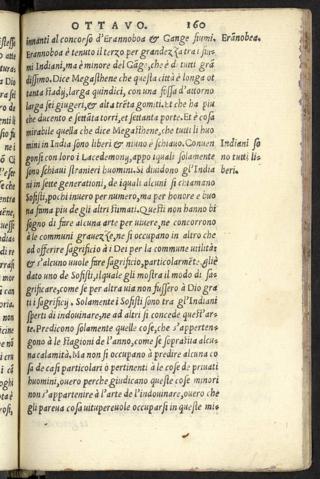 OTTAVO. 160
innanti al concorso d'Erannoboa & Gange fiumi.
Erannoboa è tenuto il terzo per grandezza tra i fiumi
mi Indiani, ma è minore del Gāge, che è di tutti grā
dissimo. Dice Megasthene che questa città è longa ot
tanta stadij, larga quindici, con una fossa d'attorno
larga sei giugeri, & alta trēta gomiti. et che ha piu
che ducento e settāta torri, et settanta porte. Et è cosa
mirabile quella che dice Megasthene, che tutti li huo
mini in India sono liberi & niuno è schiavo. Conuen
gonsi con loro i Lacedemony, appo i quali solamente
sono schiaui stranieri huomini. Si diuidono gl'India
ni in sette generationi, de i quali alcuni si chiamano
Sofisti, pochi inuero per numero, ma per honore e buo
na fama piu de gli altri stimati. Questi non hanno bi
sogno di fare alcuna arte per uiuere, ne concorrono
à le communi grauezze, ne si occupano in altro che
ad offerire sagrificio à i Dei per la commune utilità:
& s'alcuno uuole fare sagrificio, particolarmēte gliè
dato uno de Sofisti, il quale gli mostra il modo di sa-
grificare, come se per altra uia non fussero à Dio gra
ti i sagrificij. Solamente i Sofisti sono tra gl'Indiani
sperti di indouinare, ne ad altri si concede quest'ar-
te. Predicono solamente quelle cose, che s'apperten-
gono à le stagioni de l'anno, come se soprastia alcu-
na calamità, Ma non si occupano à predire alcuna co
sa de casi particolari ò pertinenti à le cose de priuati
huomini, ouero perche giudicano queste cose minori
non s'appartenere à l'arte de l'indouinare, ouero che
gli pareua cosa uitupereuole occuparsi in queste mi-
Erānoboa.
Indiani so
no tutti li-
beri.